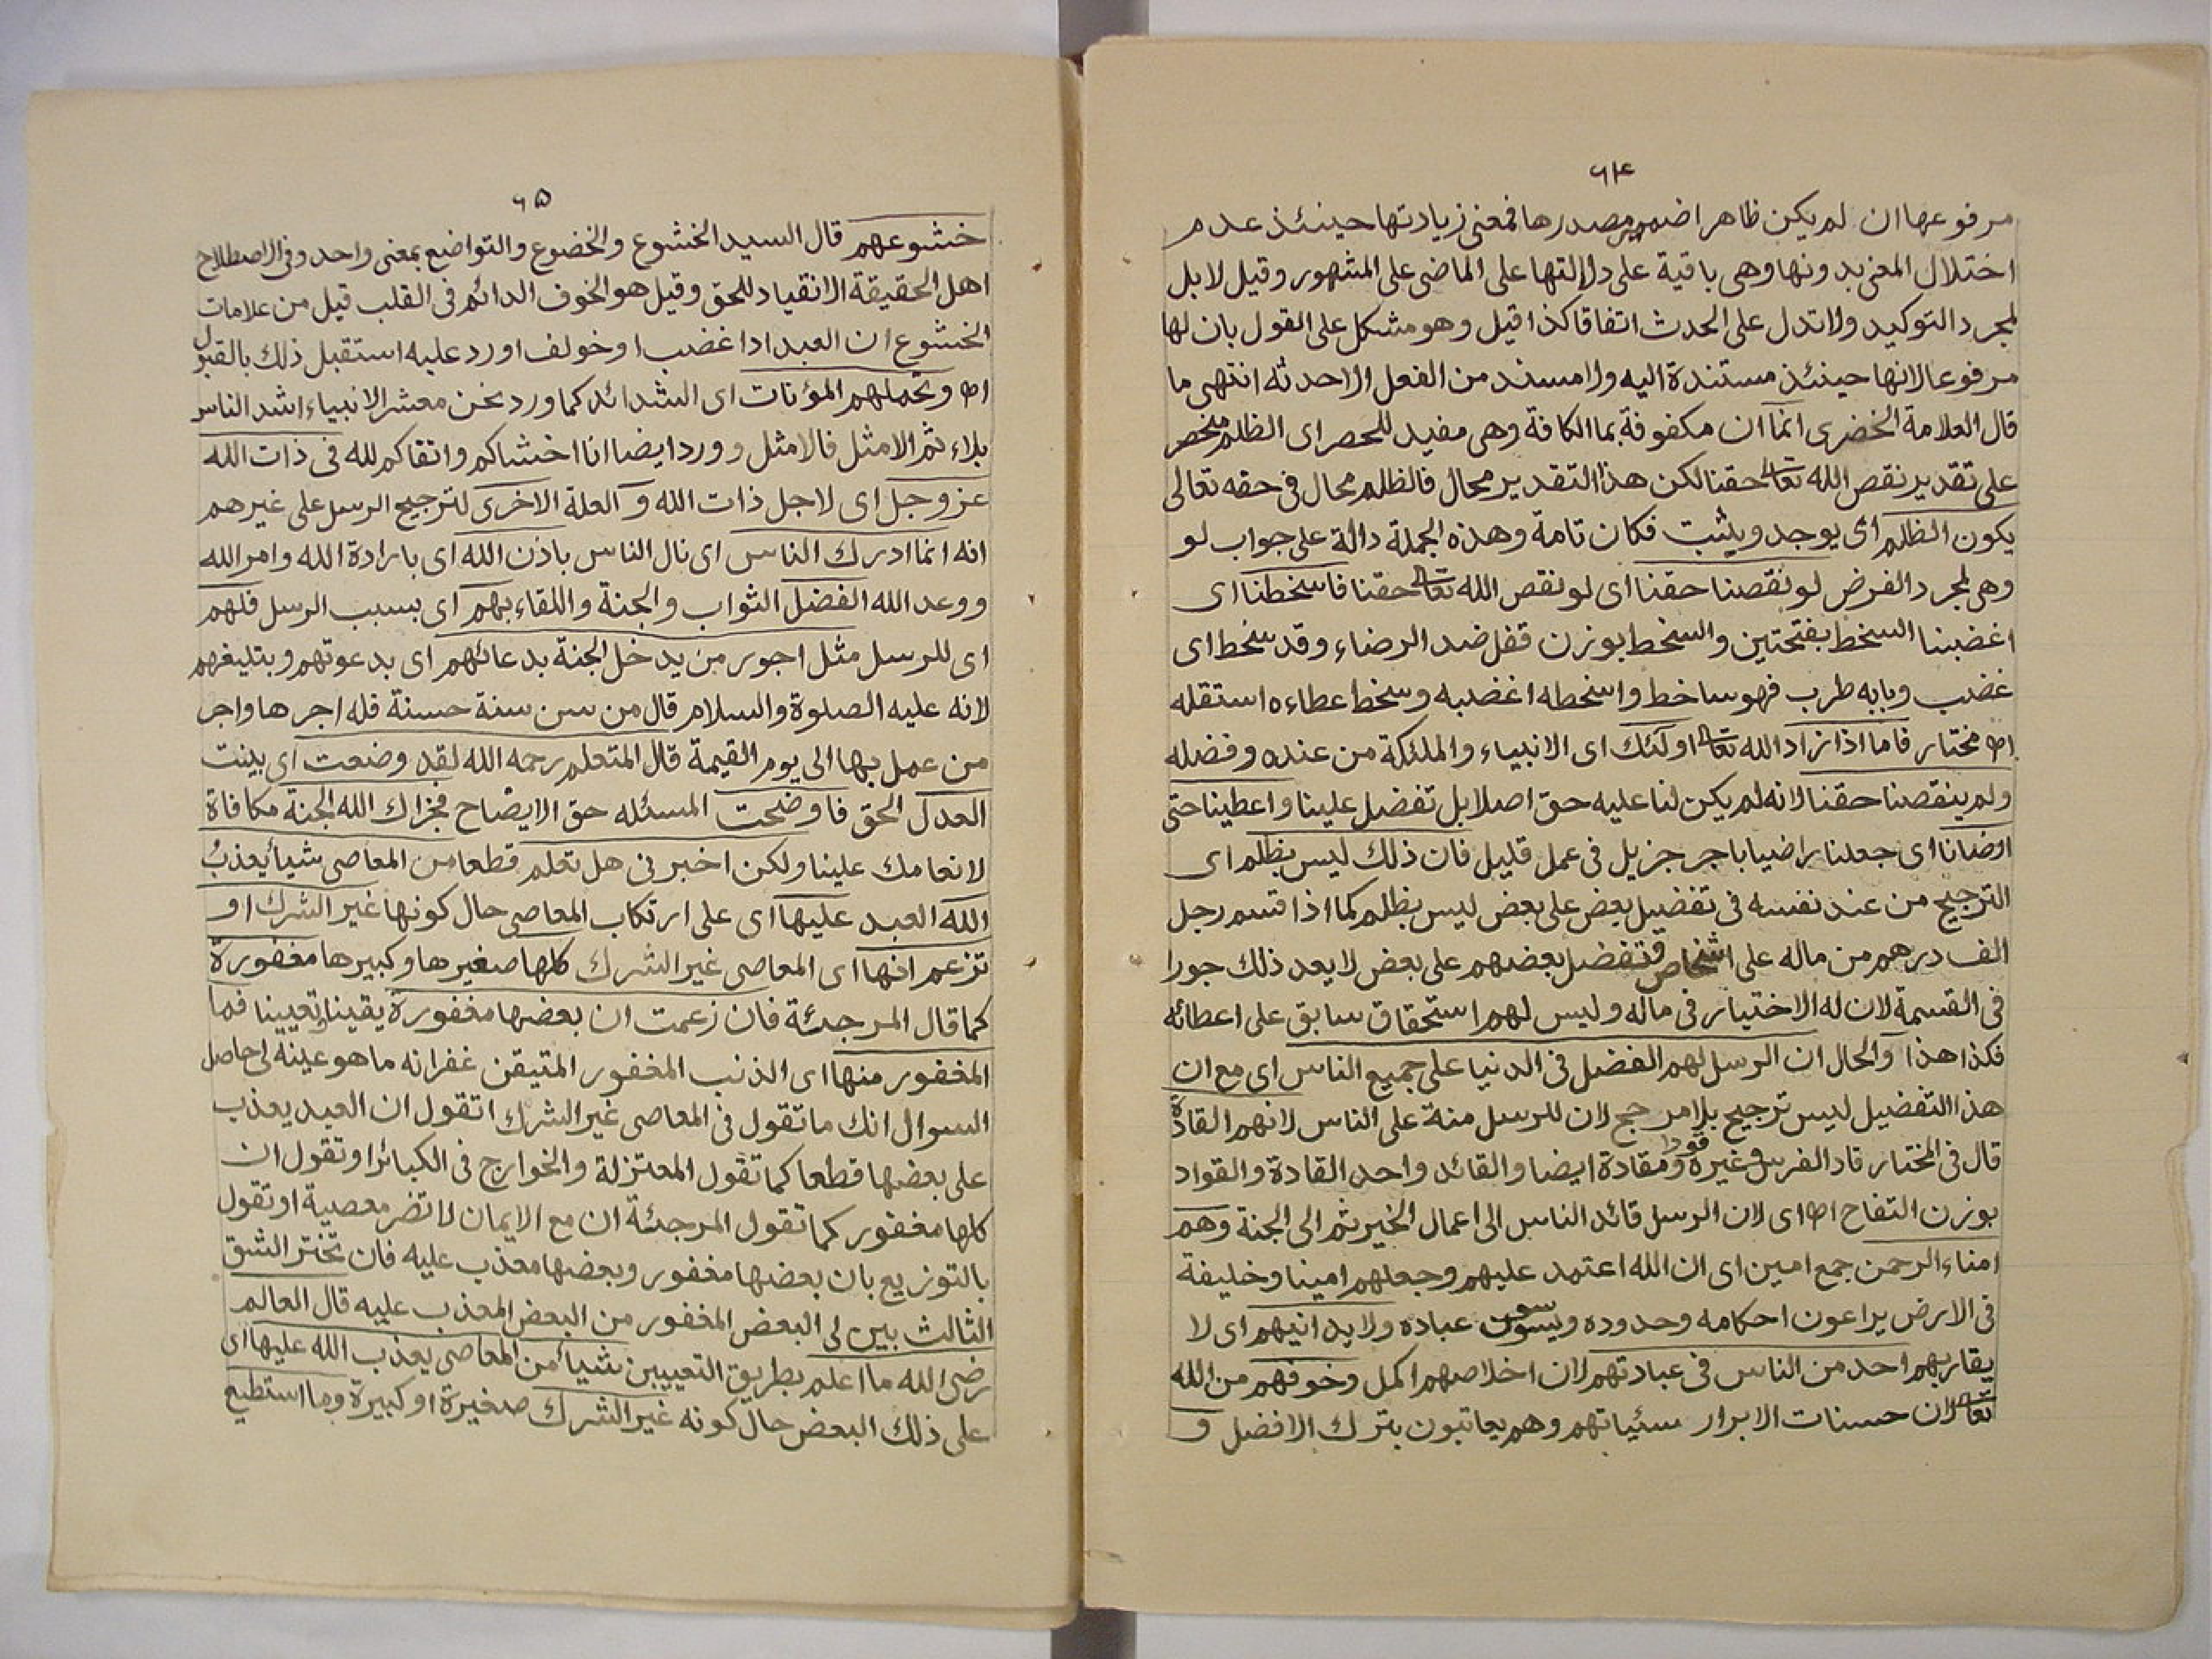 ٦٤
مرفوعها ان لم يكن ظاهرا ضمير مصدرها فمعنى زيادتها حينئذ عدم
اختلال المعنى بدونها وهى باقية على دلالتها على الماضى على المشهور وقيل لا بل
لمجرد التوكيد ولا تدل على الحدث اتفاقا كذا قيل وهو مشكل على القول بان لها
مرفوعا لانها حينئذ مستندة اليه ولا مسند من الفعل الا حدثه انتهى ما
قال العلامة الخضرى انمآ ان مكفوفة بما الكافة وهى مفيد للحصر اى الظلم منحصر
على تقدير نقص الله تعالى حقنا لكن هذا التقدير محال فالظلم محال فى حقه تعالى
يكون الظلم اى يوجد ويثبت فكان تامة وهذه الجملة دالة على جواب لو
وهى لمجرد الفرض لو نقصنا حقنا اى لو نقص الله تعالى حقنا فاسخطنا اى
اغضبنا السخط بفتحتين والسخط بوزن قفل ضد الرضاء وقد سخط اى
غضب وبابه طرب فهو ساخط واسخطه اغضبه وسخط عطاءه استقله
اه مختار فاما اذا زاد الله تعالى اولئك اى الانبياء والملئكة من عنده وفضله
ولم ينقصنا حقنا لانه لم يكن لنا عليه حق اصلا بل تفضل علينا واعطينا حتى
ارضانا اى جعلنا راضيا باجر جزيل فى عمل قليل فان ذلك ليس بظلم اى
الترجيح من عند نفسه فى تفضيل بعض على بعض ليس بظلم كما اذا قسم رجل
الف درهم من ماله على اشخاص فتفضل بعضهم على بعض لا يعد ذلك جورا
فى القسمة لان له الاختيار فى ماله وليس لهم استحقاق سابق على اعطائه
فكذا هذا والحال ان الرسل لهم الفضل فى الدنيا على جميع الناس اى مع ان
هذا التفضيل ليس ترجيح بلا مرجح لان للرسل منة على الناس لانهم القادة
قال فى المختار قاد الفرس وغيره قودا ومقادة ايضا والقائد واحد القادة والقواد
بوزن التفاح اه اى لان الرسل قائد الناس الى اعمال الخير ثم الى الجنة وهم
امناء الرحمن جمع امين اى ان الله اعتمد عليهم وجعلهم امينا وخليفة
فى الارض يراعون احكامه وحدوده ويسوسون عباده ولا يدانيهم اى لا
يقاربهم احد من الناس فى عبادتهم لان اخلاصهم اكمل وخوفهم من الله
تعالى لان حسنات الابرار سئياتهم وهم يعاتبون بترك الافضل و
٦٥
خشوعهم قال السيد الخشوع والخضوع والتواضع بمعنى واحد وفى الاصطلاح
اهل الحقيقة الانقياد للحق وقيل هو الخوف الدائم فى القلب قيل من علامات
الخشوع ان العبد اذا غضب او خولف او رد عليه استقبل ذلك بالقبول
اه وتحملهم المؤنات اى الشدائد كما ورد نحن معشر الانبياء اشد الناس
بلاء ثم الامثل فالامثل وورد ايضا انا اخشاكم واتقاكم لله فى ذات الله
عز وجل اى لاجل ذات الله و العلة الاخرى لترجيح الرسل على غيرهم
انه انما ادرك الناس اى نال الناس باذن الله اى بارادة الله وامر الله
ووعد الله الفضل الثواب والجنة واللقاء بهم اى بسبب الرسل فلهم
اى للرسل مثل اجور من يدخل الجنة بدعائهم اى بدعوتهم وبتليغهم
لانه عليه الصلوة والسلام قال من سن سنة حسنة فله اجرها واجر
من عمل بها الى يوم القيمة قال المتعلم رحمه الله لقد وضعت اى بينت
العدل الحق فاوضحت المسئله حق الايضاح فجزاك الله الجنة مكافاة
لانعامك علينا ولكن اخبرنى هل تعلم قطعا من المعاصى شيأ يعذبُ
الله العبد عليها اى على ارتكاب المعاصى حال كونها غير الشرك او
تزعم انها اى المعاصى غير الشرك كلها صغيرها وكبيرها مغفورة
كما قال المرجئة فان زعمت ان بعضها مغفورة يقينا وتعيينا فما
المغفور منها اى الذنب المغفور المتيقن غفرانه ما هو عينه لى حاصل
السوال انك ما تقول فى المعاصى غير الشرك اتقول ان العبد يعذب
على بعضها قطعا كما تقول المعتزلة والخوارج فى الكبائر او تقول ان
كلها مغفور كما تقول المرجئة ان مع الايمان لا تضر معصية او تقول
بالتوزيع بان بعضها مغفور وبعضها معذب عليه فان تختر الشق
الثالث بين لى البعض المغفور من البعض المعذب عليه قال العالم
رضى الله ما اعلم بطريق التعيين شيأ من المعاصى يعذب الله عليها اى
على ذلك البعض حال كونه غير الشرك صغيرة او كبيرة وما استطيع